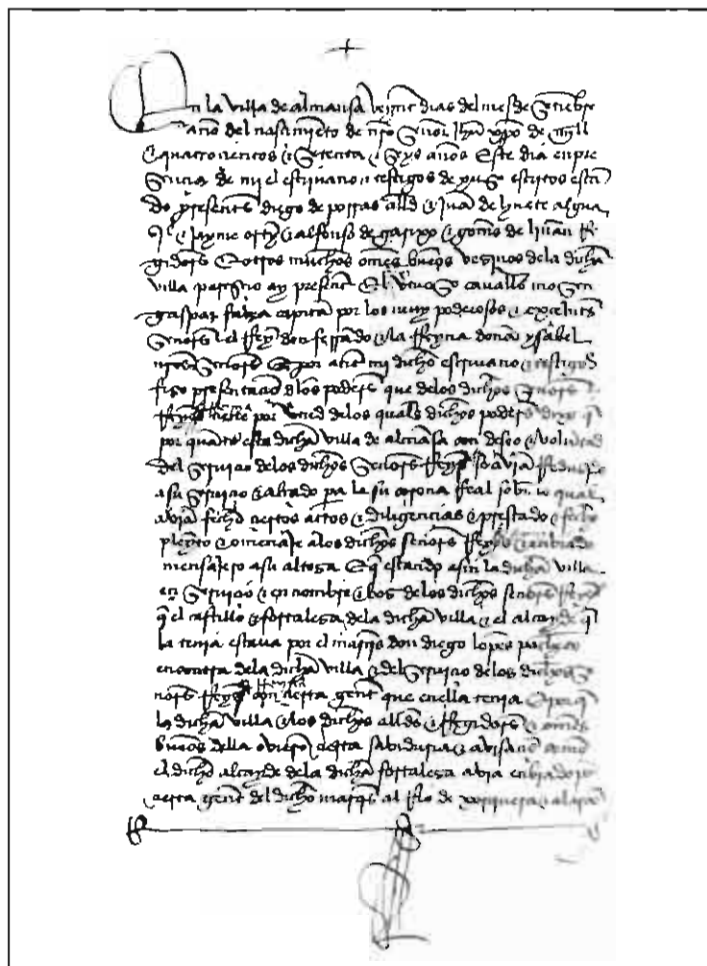 En la villa de almansa veynte dias del mes de setienbre
año del nasçimiento de nro señor ihu xpo de mill
e quatroçientos e setenta e seys años este dia en pre
sençia de mi el escriuano e testigos de yuso escriptos estan
do presentes diego de porras alld e juan de huete algua
zil e jayme orty e alfonso de e gomes de re
gidores e otros muchos omes buenos vezinos de la dicha
villa paresçio ay presente el vtuoso cauallo mosen
gaspar fabra capitan por los muy poderosos e exçelentes
señores el rrey don ferrando e la rreyna doña ysabel
nros señores e por ante mi dicho escriuano e testigos
fizo presentaçion de los poderes que de los dichos señores
rreyes tiene por vtud de los quales dichos poderes dixo q
por quanto esta dicha villa de almansa con deseo e voluntad
del seruiçio de los dichos señores rreyes se avia
a su seruiçio e alçado para la su corona rreal sobre lo qual
avian fecho çiertos actos e diligençias e prestado e fecho
pleyto e omenaje a los dichos señores rreyes e enbiado
mensajero a su alteza e q estando asi la dicha villa
en seruiçio e en nonbre e boz de los dichos señores rreyes
q el castillo e fortaleza de la dicha villa e el alcayde q
la tenia estaua por el marqs don diego lopes pacheco
en contra de la dicha villa e del seruiçio de los dichos se
ñores rreyes con çierta gente que en ella tenia e por q
la dicha villa e los dichos alldes e rregidores e omes
buenos della ovieron çierta sabiduria e avisaçion como
el dicho alcayde de la dicha fortaleza avia enbiado por
çierta gente del dicho marqs al rio de xorquera e